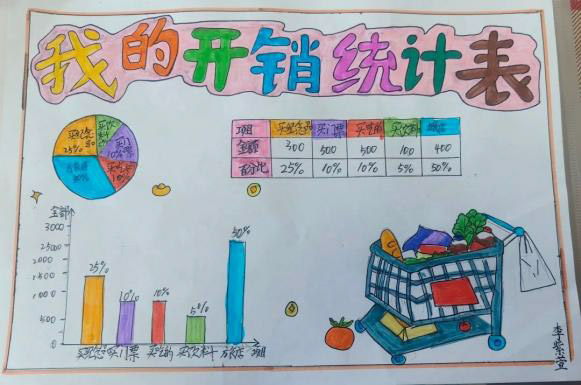 我的开销统计表
买纪念品 25%
买饮料 5%
买门票 10%
买吃的 10%
项目 买纪念品 买门票 买吃的 买饮料 旅店
金额 300 500 500 100 400
百分比 25% 10% 10% 5% 50%
金额
3000
2500
2000
1500
1000
500
0
25%
10%
10%
5%
50%
买纪念品 买门票 买吃的 买饮料 旅店 项目